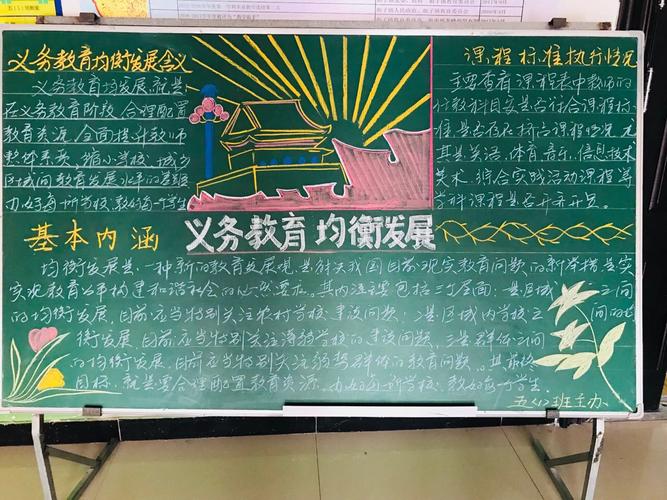 义务教育均衡发展含义
义务教育均衡发展，就是
在义务教育阶段，合理配置
教育资源，全面提升教师
整体素质，缩小学校、城乡
区域间教育发展水平的差距
办好每所学校，教好每一学生
课程标准执行情况
主要查看课程表中教师的
任教科目安是否符合课程标
准是否存在挤占课程情况尤
其是英语、体育、音乐、信息技术
美术、综合实践活动课程等
学科课程是否开齐开足。
义务教育均衡发展
基本内涵
均衡发展是一种新的教育发展观，是解决我国目前现实教育问题的新举措是实
实现教育公平构建和谐社会的必然要求。其内涵主要包括三个层面：一是区域之间
的均衡发展，目前应当特别关注农村学校建设问题，二是区域内学校之间的
衡发展，目前应当特别关注薄弱学校的建设问题，三是群体之间
的均衡发展，目前应当特别关注弱势群体的教育问题。其最终
目标，就是要合理配置教育资源，办好每所学校，教好每一学生。
五〈1〉班主办